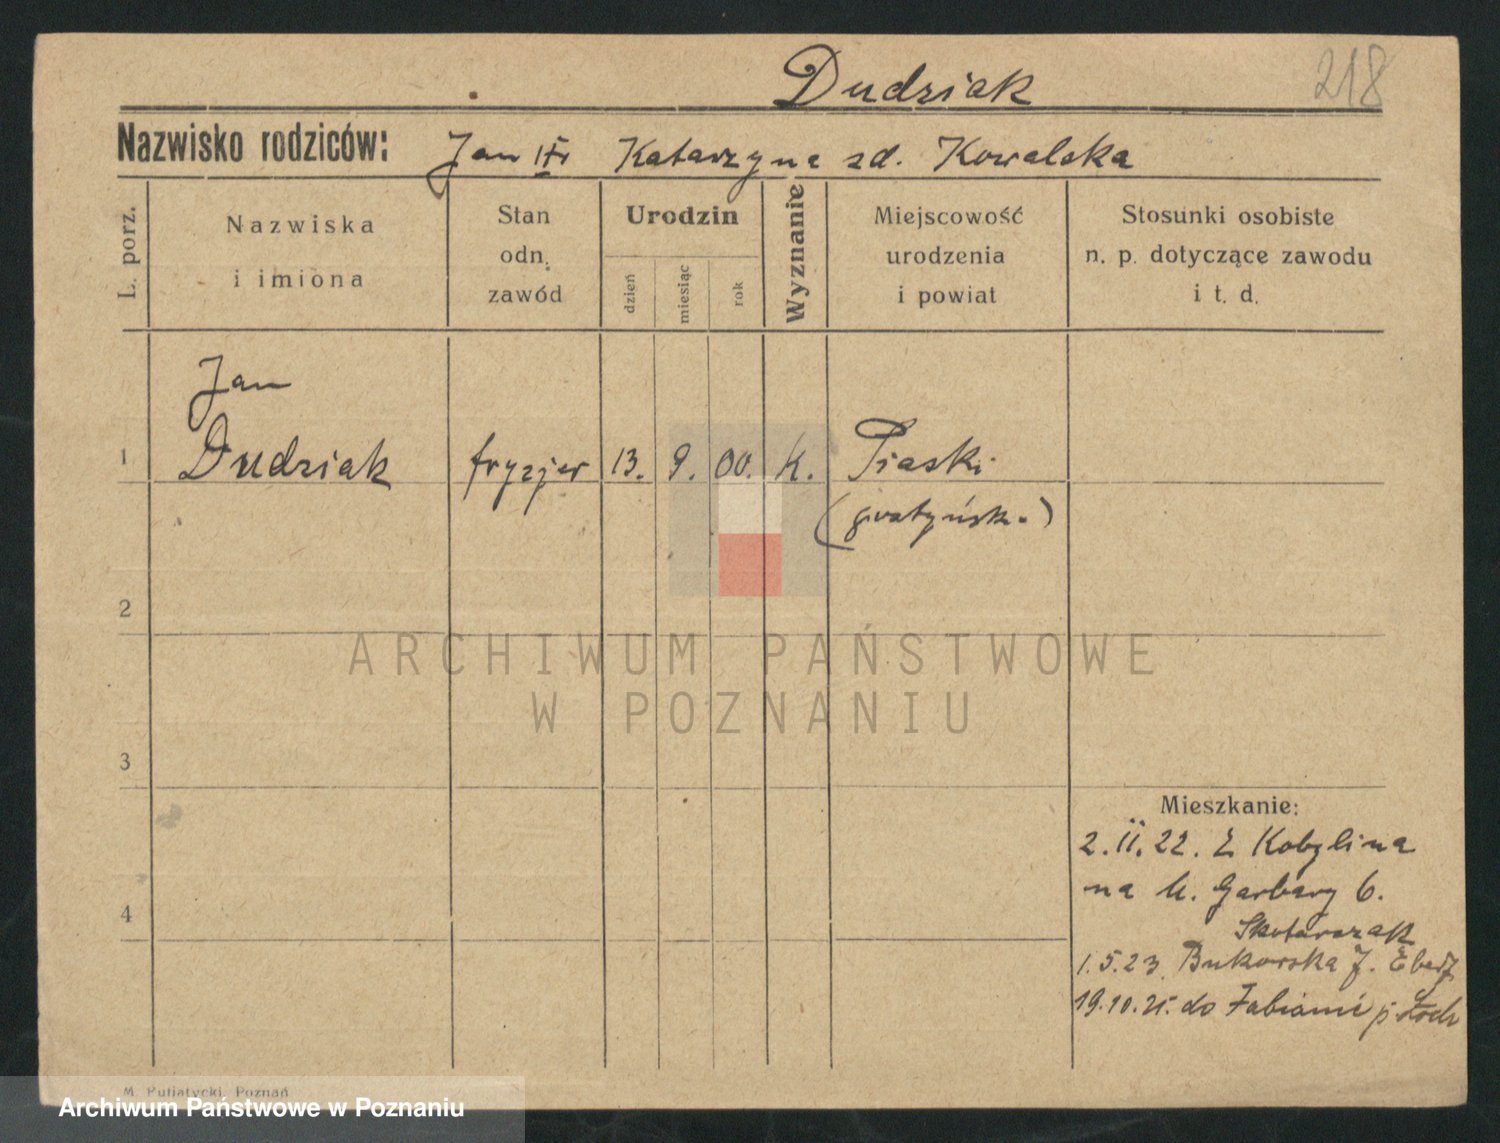 Dudziak
218
Nazwisko rodziców: Jan Katarzyna zd. Kowalska
L. porz.
Nazwiska
i imiona
Stan
odn.
zawód
Urodzin
dzień
miesiąc
rok
Wyznanie
Miejscowość
urodzenia
i powiat
Stosunki osobiste
n. p. dotyczące zawodu
i t. d.
Jan
1 Dudziak fryzjer 13. 9. 00. k. Piaski
(gostyńsk.)
2
ARCHIWUM PAŃSTWOWE
W POZNANIU
3
Mieszkanie:
2.II.22. z Kobylina
na Garbary 6.
4
Skotarczak
1.5.23 Bukowska 7.
19.10.25. do
M. Putiatycki, Poznań
Archiwum Państwowe w Poznaniu